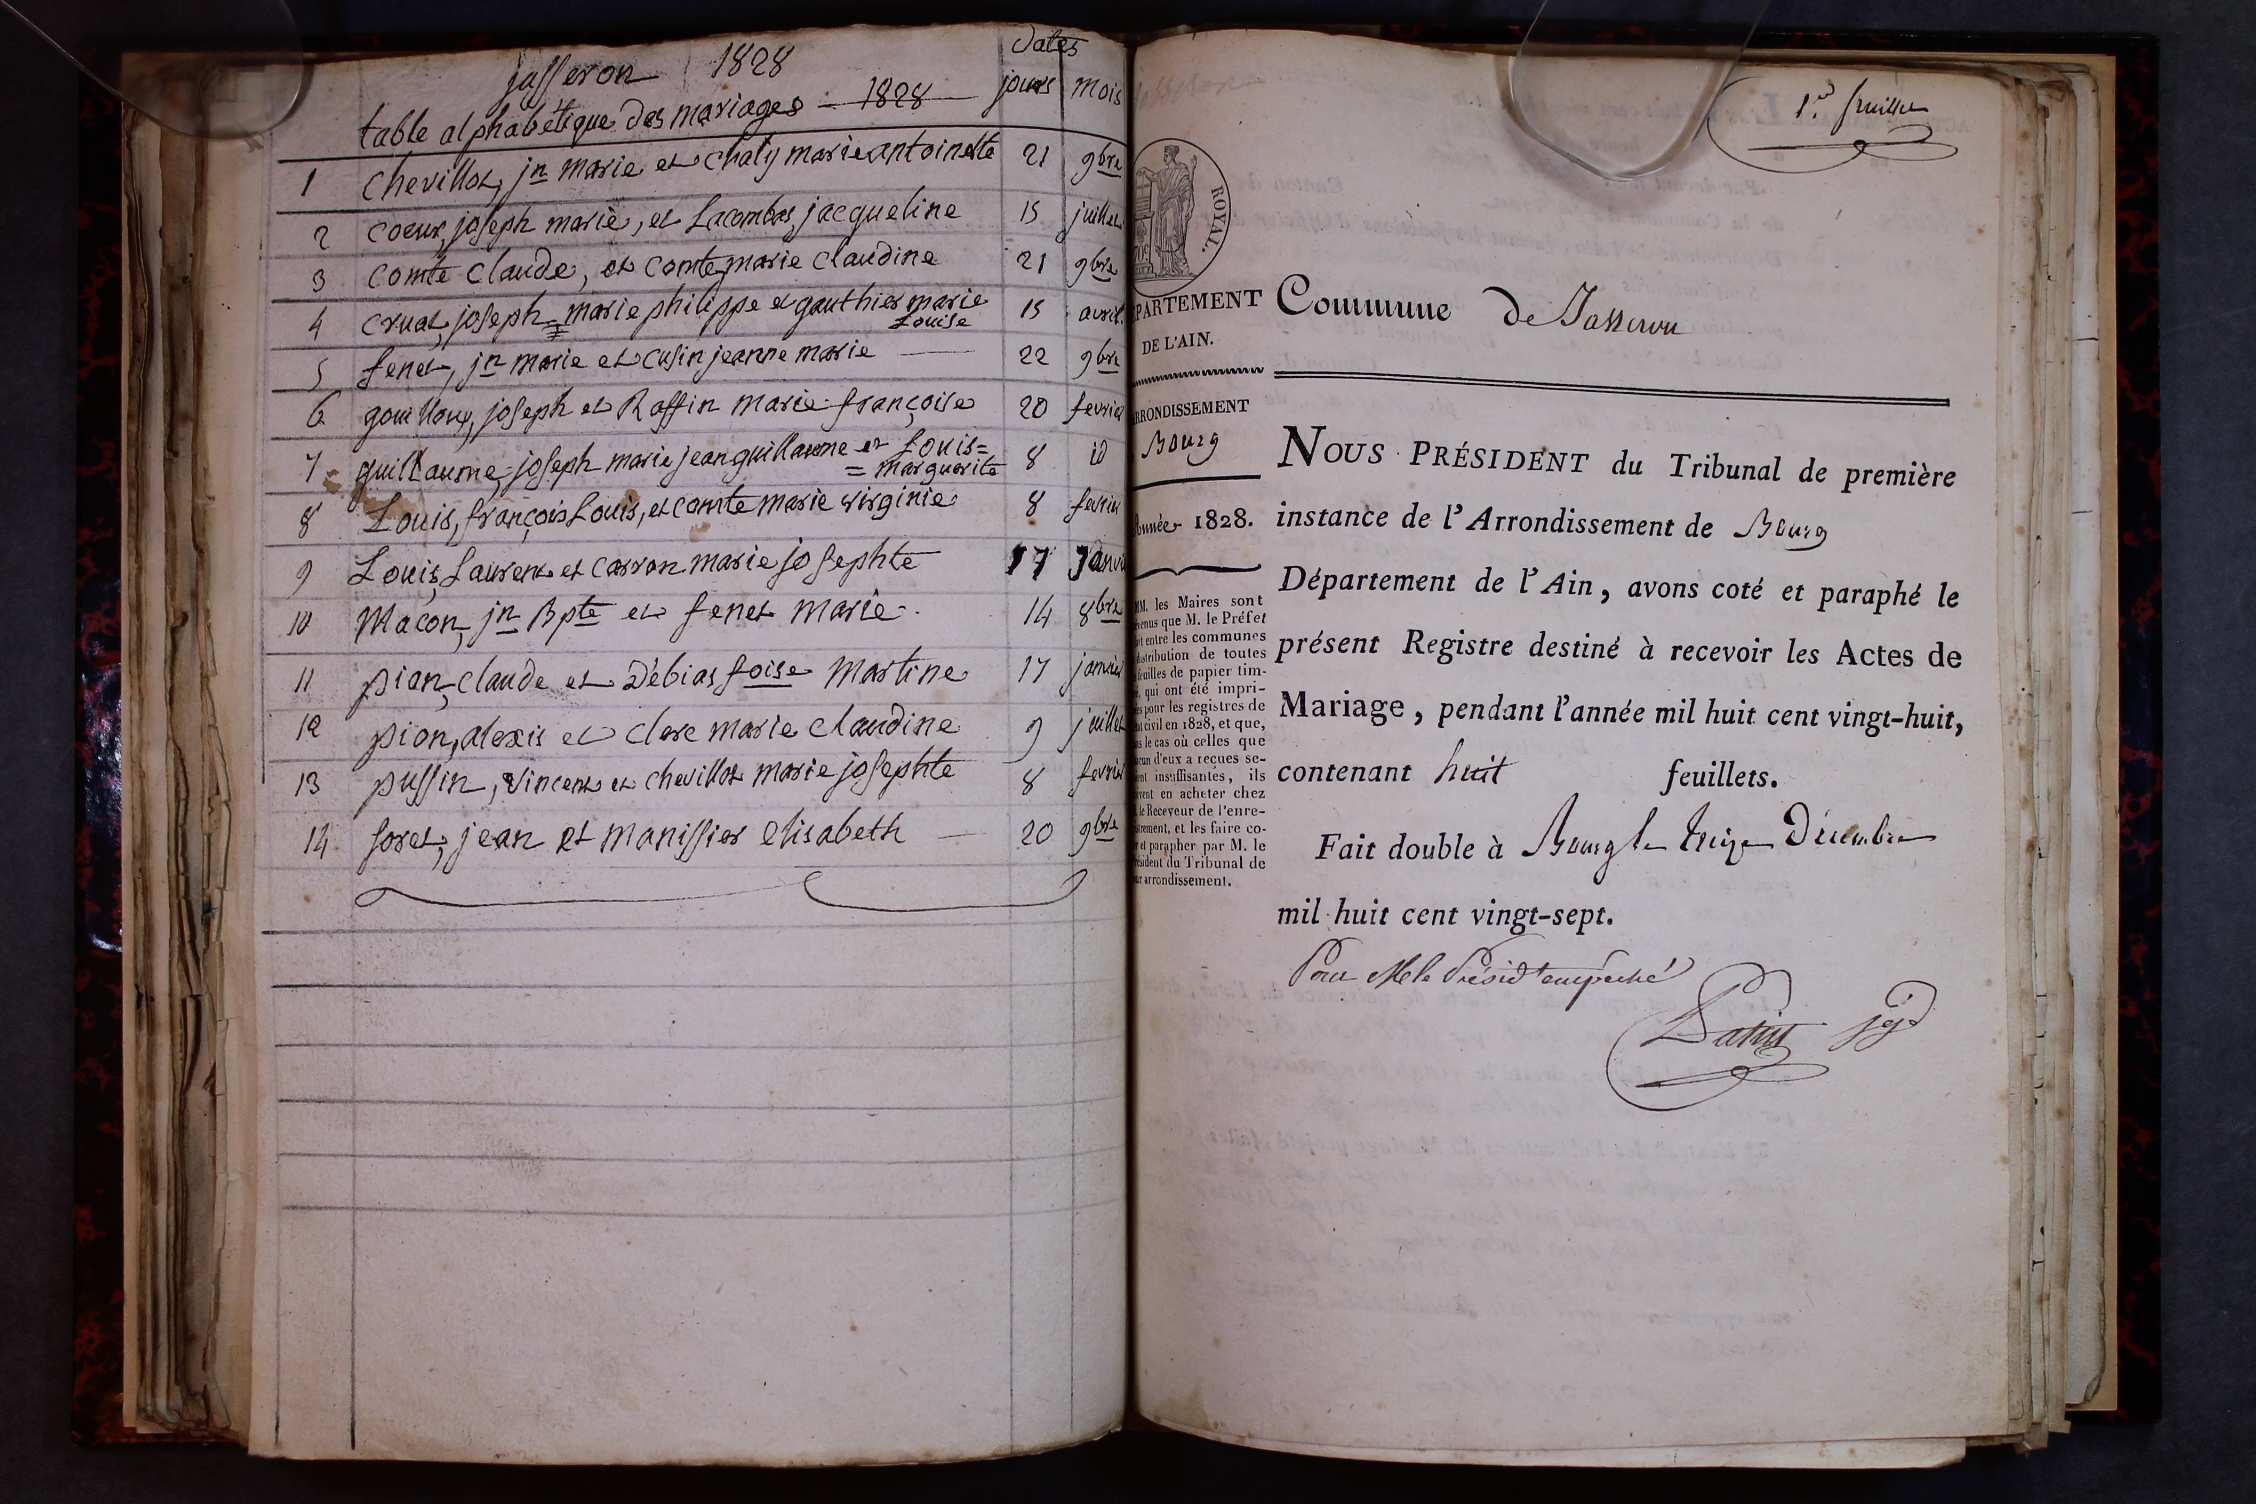 jasseron 1828
table alphabétique des mariages - 1828
dates
jours mois
1 chevillot, jn marie et chaly marie antoinette 21 9bre
2 coeur, joseph marie, et Lacombas, jacqueline 15 juillet
3 comte claude, et comte, marie claudine 21 9bre
4 cruat, joseph = marie philippe et gauthier marie Louise 15 avril
5 fenet, jn marie et cusin jeanne marie 22 9bre
6 gouilloux, joseph et Raffin marie françoise 20 fevrier
7 guillaume, joseph marie jean guillaume et Louis = = marguerite 8 id
8 Louis, françois Louis, et comte marie virginie 8 fevrier
9 Louis, Laurent et carron marie josephte 17 Janvi
10 Macon, jn Bpte et fenet marie. 14 8bre
11 pian, claude et Débias foise Martine 17 janvier
12 pion, alexis et clerc marie claudine 9 juillet
13 pussin, vincent et chevillot marie josephte 8 fevrier
14 foret, jean et manissier elisabeth 20 9bre
1er feuillet
ROYAL.
PARTEMENT
DE L'AIN.
RRONDISSEMENT
Bourg
Année 1828.
MM. les Maires sont
venus que M. le Préfet
it entre les communes
distribution de toutes
feuilles de papier tim-
, qui ont été impri-
es pour les registres de
at civil en 1828, et que,
s le cas où celles que
cun d'eux a reçues se-
ent insuffisantes, ils
ivent en acheter chez
le Receveur de l'enre-
istrement, et les faire co-
r et parapher par M. le
résident du Tribunal de
ur arrondissement.
Commune de Jasseron
NOUS PRÉSIDENT du Tribunal de première
instance de l'Arrondissement de Bourg
Département de l'Ain, avons coté et paraphé le
présent Registre destiné à recevoir les Actes de
Mariage, pendant l'année mil huit cent vingt-huit,
contenant huit feuillets.
Fait double à Bourg le treize Décembre
mil huit cent vingt-sept.
Pour M. le Présidt empêché